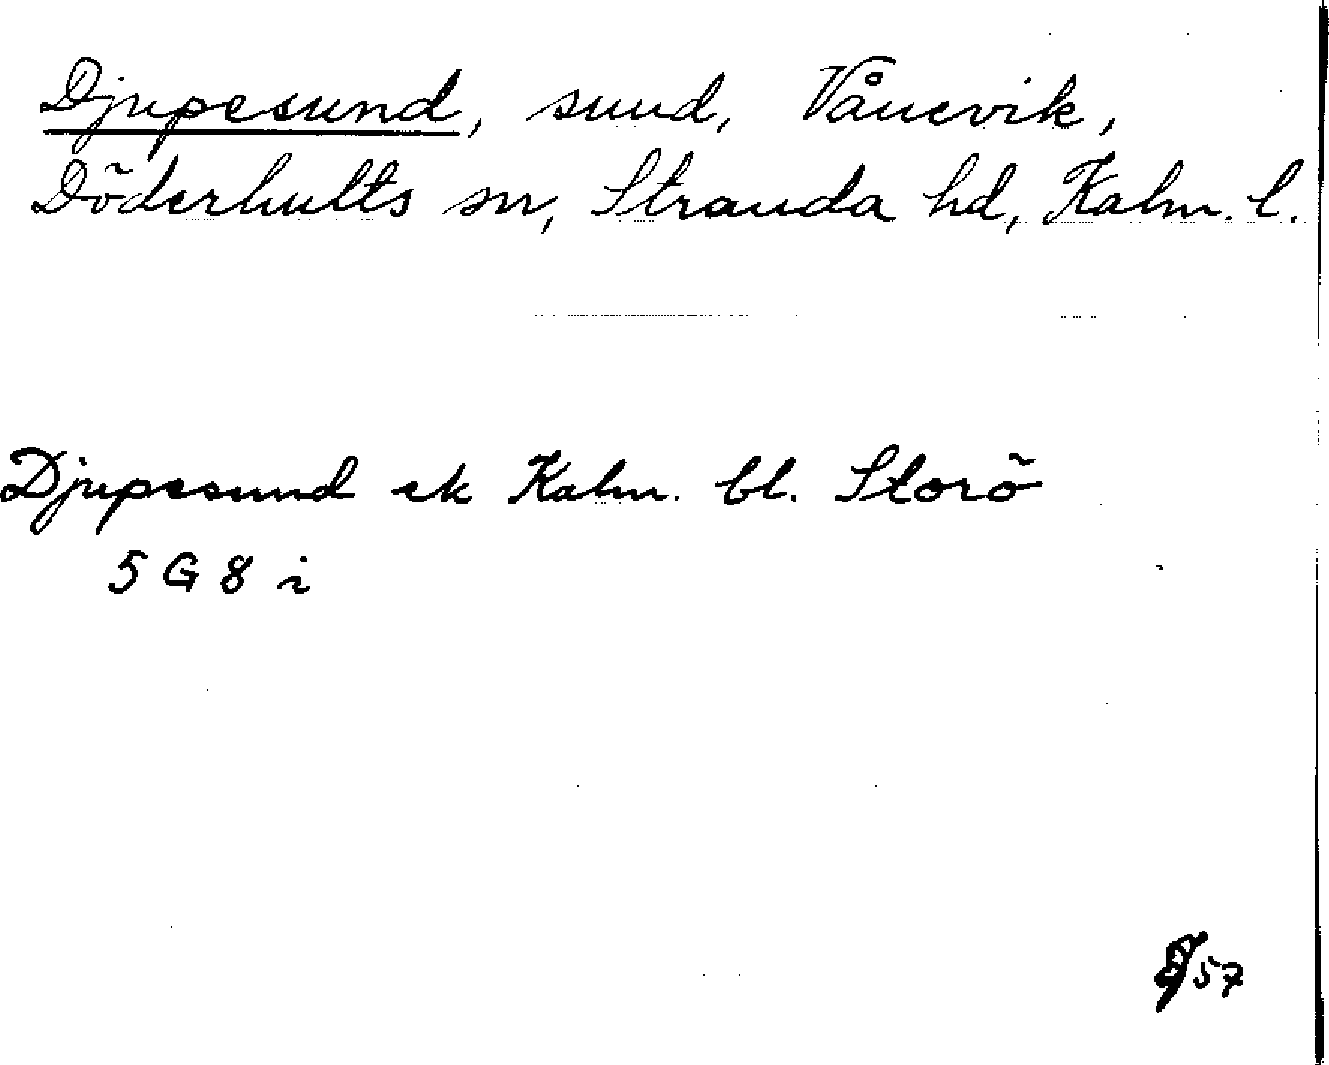 Djupesund, sund, Vånevik,
Döderhults sn, Stranda hd, Kalm. l.
Djupesund ek Kalm. bl. Storö
5 G 8 i
57